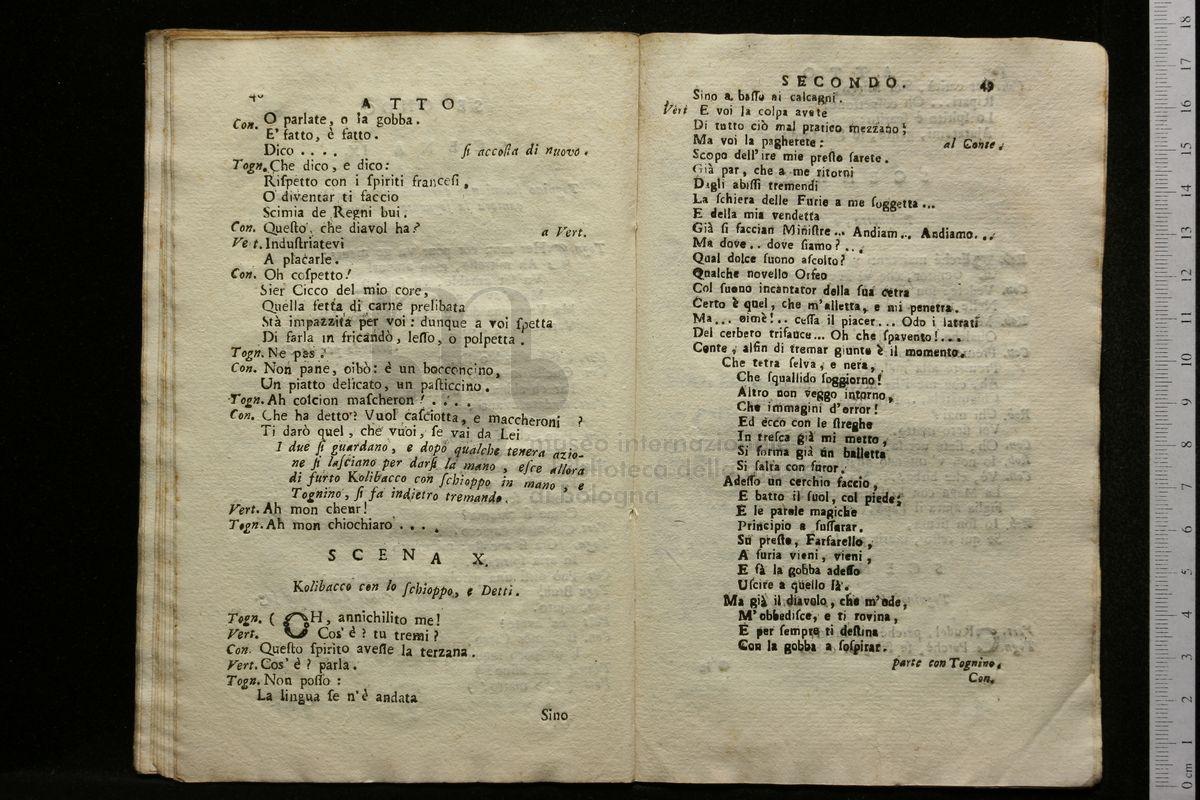 ATTO
Con. O parlate, o la gobba.
E' fatto, è fatto.
Dico . . . . ſi accoſta di nuovo.
Togn. Che dico, e dico:
Riſpetto con i ſpiriti franceſi,
O diventar ti faccio
Scimia de Regni bui.
Con. Queſto, che diavol ha? a Vert.
Ve t. Induſtriatevi
A placarle.
Con. Oh coſpetto!
Sier Cicco del mio core,
Quella fetta di carne prelibata
Stà impazzita per voi: dunque a voi ſpetta
Di farla in fricandò, leſſo, o polpetta.
Togn. Ne pas?
Con. Non pane, oibò: è un bocconcino,
Un piatto delicato, un paſticcino.
Togn. Ah coſcion maſcheron! . . . .
Con. Che ha detto? Vuol caſciotta, e maccheroni ?
Ti darò quel, che vuoi, ſe vai da Lei
I due ſi guardano, e dopo qualche tenera azio-
ne ſi laſciano per darſi la mano, eſce allora
di furto Kolibacco con ſchioppo in mano, e
Tognino, ſi fa indietro tremando.
Vert. Ah mon cheur!
Togn. Ah mon chiochiaro . . . .
SCENA X.
Kolibacco con lo ſchioppo, e Detti.
Togn. ( OH, annichilito me!
Vert. Cos' è? tu tremi?
Con. Queſto ſpirito aveſſe la terzana.
Vert. Cos' è? parla.
Togn. Non poſſo:
La lingua ſe n' è andata
Sino
SECONDO. 49
Sino a baſſo ai calcagni.
Vert E voi la colpa avete
Di tutto ciò mal pratico mezzano;
Ma voi la pagherete: al Conte.
Scopo dell'ire mie preſto ſarete.
Già par, che a me ritorni
Dagli abiſſi tremendi
La ſchiera delle Furie a me ſoggetta...
E della mia vendetta
Già ſi faccian Miniſtre... Andiam... Andiamo...
Ma dove.. dove ſiamo?...
Qual dolce ſuono aſcolto?
Qualche novello Orfeo
Col ſuono incantator della ſua cetra
Certo è quel, che m'alletta, e mi penetra.
Ma... oimè!.. ceſſa il piacer... Odo i latrati
Del cerbero trifauce... Oh che ſpavento!...
Conte, alfin di tremar giunto è il momento.
Che tetra ſelva, e nera,
Che ſquallido ſoggiorno!
Altro non veggo intorno,
Che immagini d'orror!
Ed ecco con le ſtreghe
In treſca già mi metto,
Si forma già un balletto
Si ſalta con furor.
Adeſſo un cerchio faccio,
E batto il ſuol, col piede;
E le parole magiche
Principio a ſuſſurar.
Su preſto, Farfarello,
A furia vieni, vieni,
E fà la gobba adeſſo
Uſcire a quello là.
Ma già il diavolo, che m'ode,
M'obbediſce, e ti rovina,
E per ſempre ti deſtina
Con la gobba a ſoſpirar.
parte con Tognino.
Con.
museo internazionale
biblioteca della
di bologna
0 cm 1 2 3 4 5 6 7 8 9 10 11 12 13 14 15 16 17 18